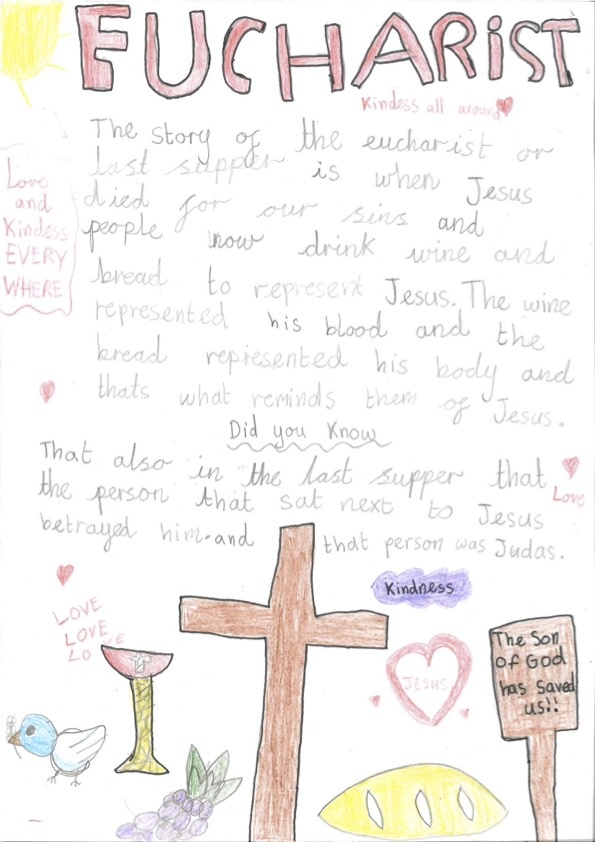 EUCHARiST
Kindess all around
The story of the eucharist or
last supper is when Jesus
died for our sins and
people now drink wine and
bread to represent Jesus. The wine
represented his blood and the
bread represented his body and
thats what reminds them of Jesus.
Love
and
Kindess
EVERY
WHERE
Did you Know
That also in the last supper that
the person that sat next to Jesus
betrayed him. and that person was Judas.
Love
Kindness
LOVE
LOVE
LOVE
JESUS
The Son
of God
has saved
us!!